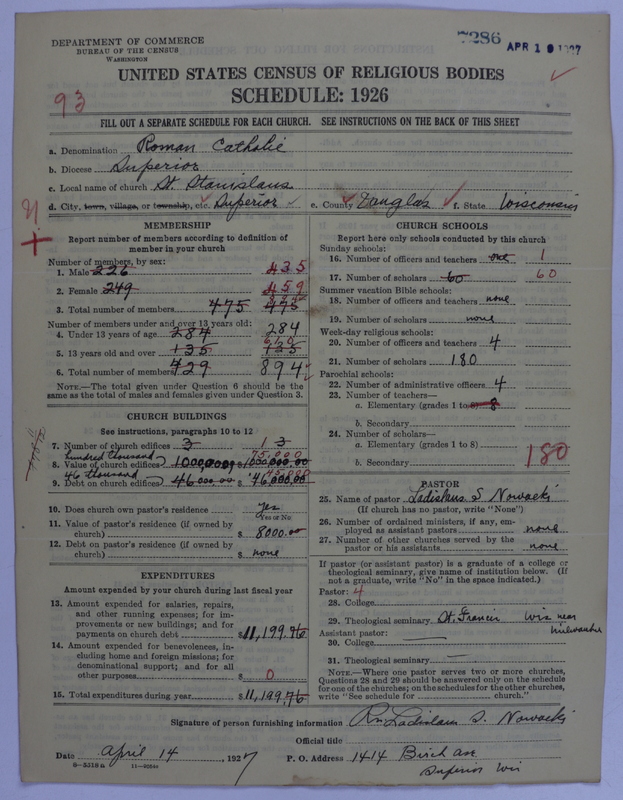 DEPARTMENT OF COMMERCE
BUREAU OF THE CENSUS
WASHINGTON
7286
APR 1
UNITED STATES CENSUS OF RELIGIOUS BODIES
SCHEDULE: 1926
93
FILL OUT A SEPARATE SCHEDULE FOR EACH CHURCH. SEE INSTRUCTIONS ON THE BACK OF THIS SHEET
a. Denomination Roman Catholic
b. Diocese Superior
c. Local name of church St. Stanislaus
d. City, town, village, or township, etc. Superior e. County Douglas f. State Wisconsin
MEMBERSHIP
Report number of members according to definition of
member in your church
Number of members, by sex:
1. Male 226 435
2. Female 249 459
3. Total number of members 475 475
Number of members under and over 13 years old:
4. Under 13 years of age 284 284
5. 13 years old and over 135 135 610
6. Total number of members 729 894
NOTE.—The total given under Question 6 should be the
same as the total of males and females given under Question 3.
CHURCH BUILDINGS
See instructions, paragraphs 10 to 12
7. Number of church edifices 3 1 3
hundred thousand 75,000
8. Value of church edifices
46 thousand 45,000
9. Debt on church edifices 46000.00 $46,000.00
10. Does church own pastor's residence? yes
Yes or No
11. Value of pastor's residence (if owned by
church) $8000.00
12. Debt on pastor's residence (if owned by
church) $ none
EXPENDITURES
Amount expended by your church during last fiscal year
13. Amount expended for salaries, repairs,
and other running expenses; for im-
provements or new buildings; and for
payments on church debt $11,199.76
14. Amount expended for benevolences, in-
cluding home and foreign missions; for
denominational support; and for all
other purposes $ 0
15. Total expenditures during year $11,199.76
CHURCH SCHOOLS
Report here only schools conducted by this church
Sunday schools:
16. Number of officers and teachers one 1
17. Number of scholars 60 60
Summer vacation Bible schools:
18. Number of officers and teachers none
19. Number of scholars none
Week-day religious schools:
20. Number of officers and teachers 4
21. Number of scholars 180
Parochial schools:
22. Number of administrative officers 4
23. Number of teachers—
a. Elementary (grades 1 to 8) 8
b. Secondary
24. Number of scholars—
a. Elementary (grades 1 to 8)
b. Secondary 180
PASTOR
25. Name of pastor Ladislaus S Nowacki
(If church has no pastor, write "None")
26. Number of ordained ministers, if any, em-
ployed as assistant pastors none
27. Number of other churches served by the
pastor or his assistants none
If pastor (or assistant pastor) is a graduate of a college or
theological seminary, give name of institution below. (If
not a graduate, write "No" in the space indicated.)
Pastor: 4
28. College
29. Theological seminary St. Francis Wis near
Milwaukee
Assistant pastor:
30. College —
31. Theological seminary —
NOTE.—Where one pastor serves two or more churches,
Questions 28 and 29 should be answered only on the schedule
for one of the churches; on the schedules for the other churches,
write "See schedule for church."
Signature of person furnishing information Rev. Ladislaus S. Nowacki
Official title
Date April 14, 1927 P. O. Address 1414 Birch Ave
Superior Wis